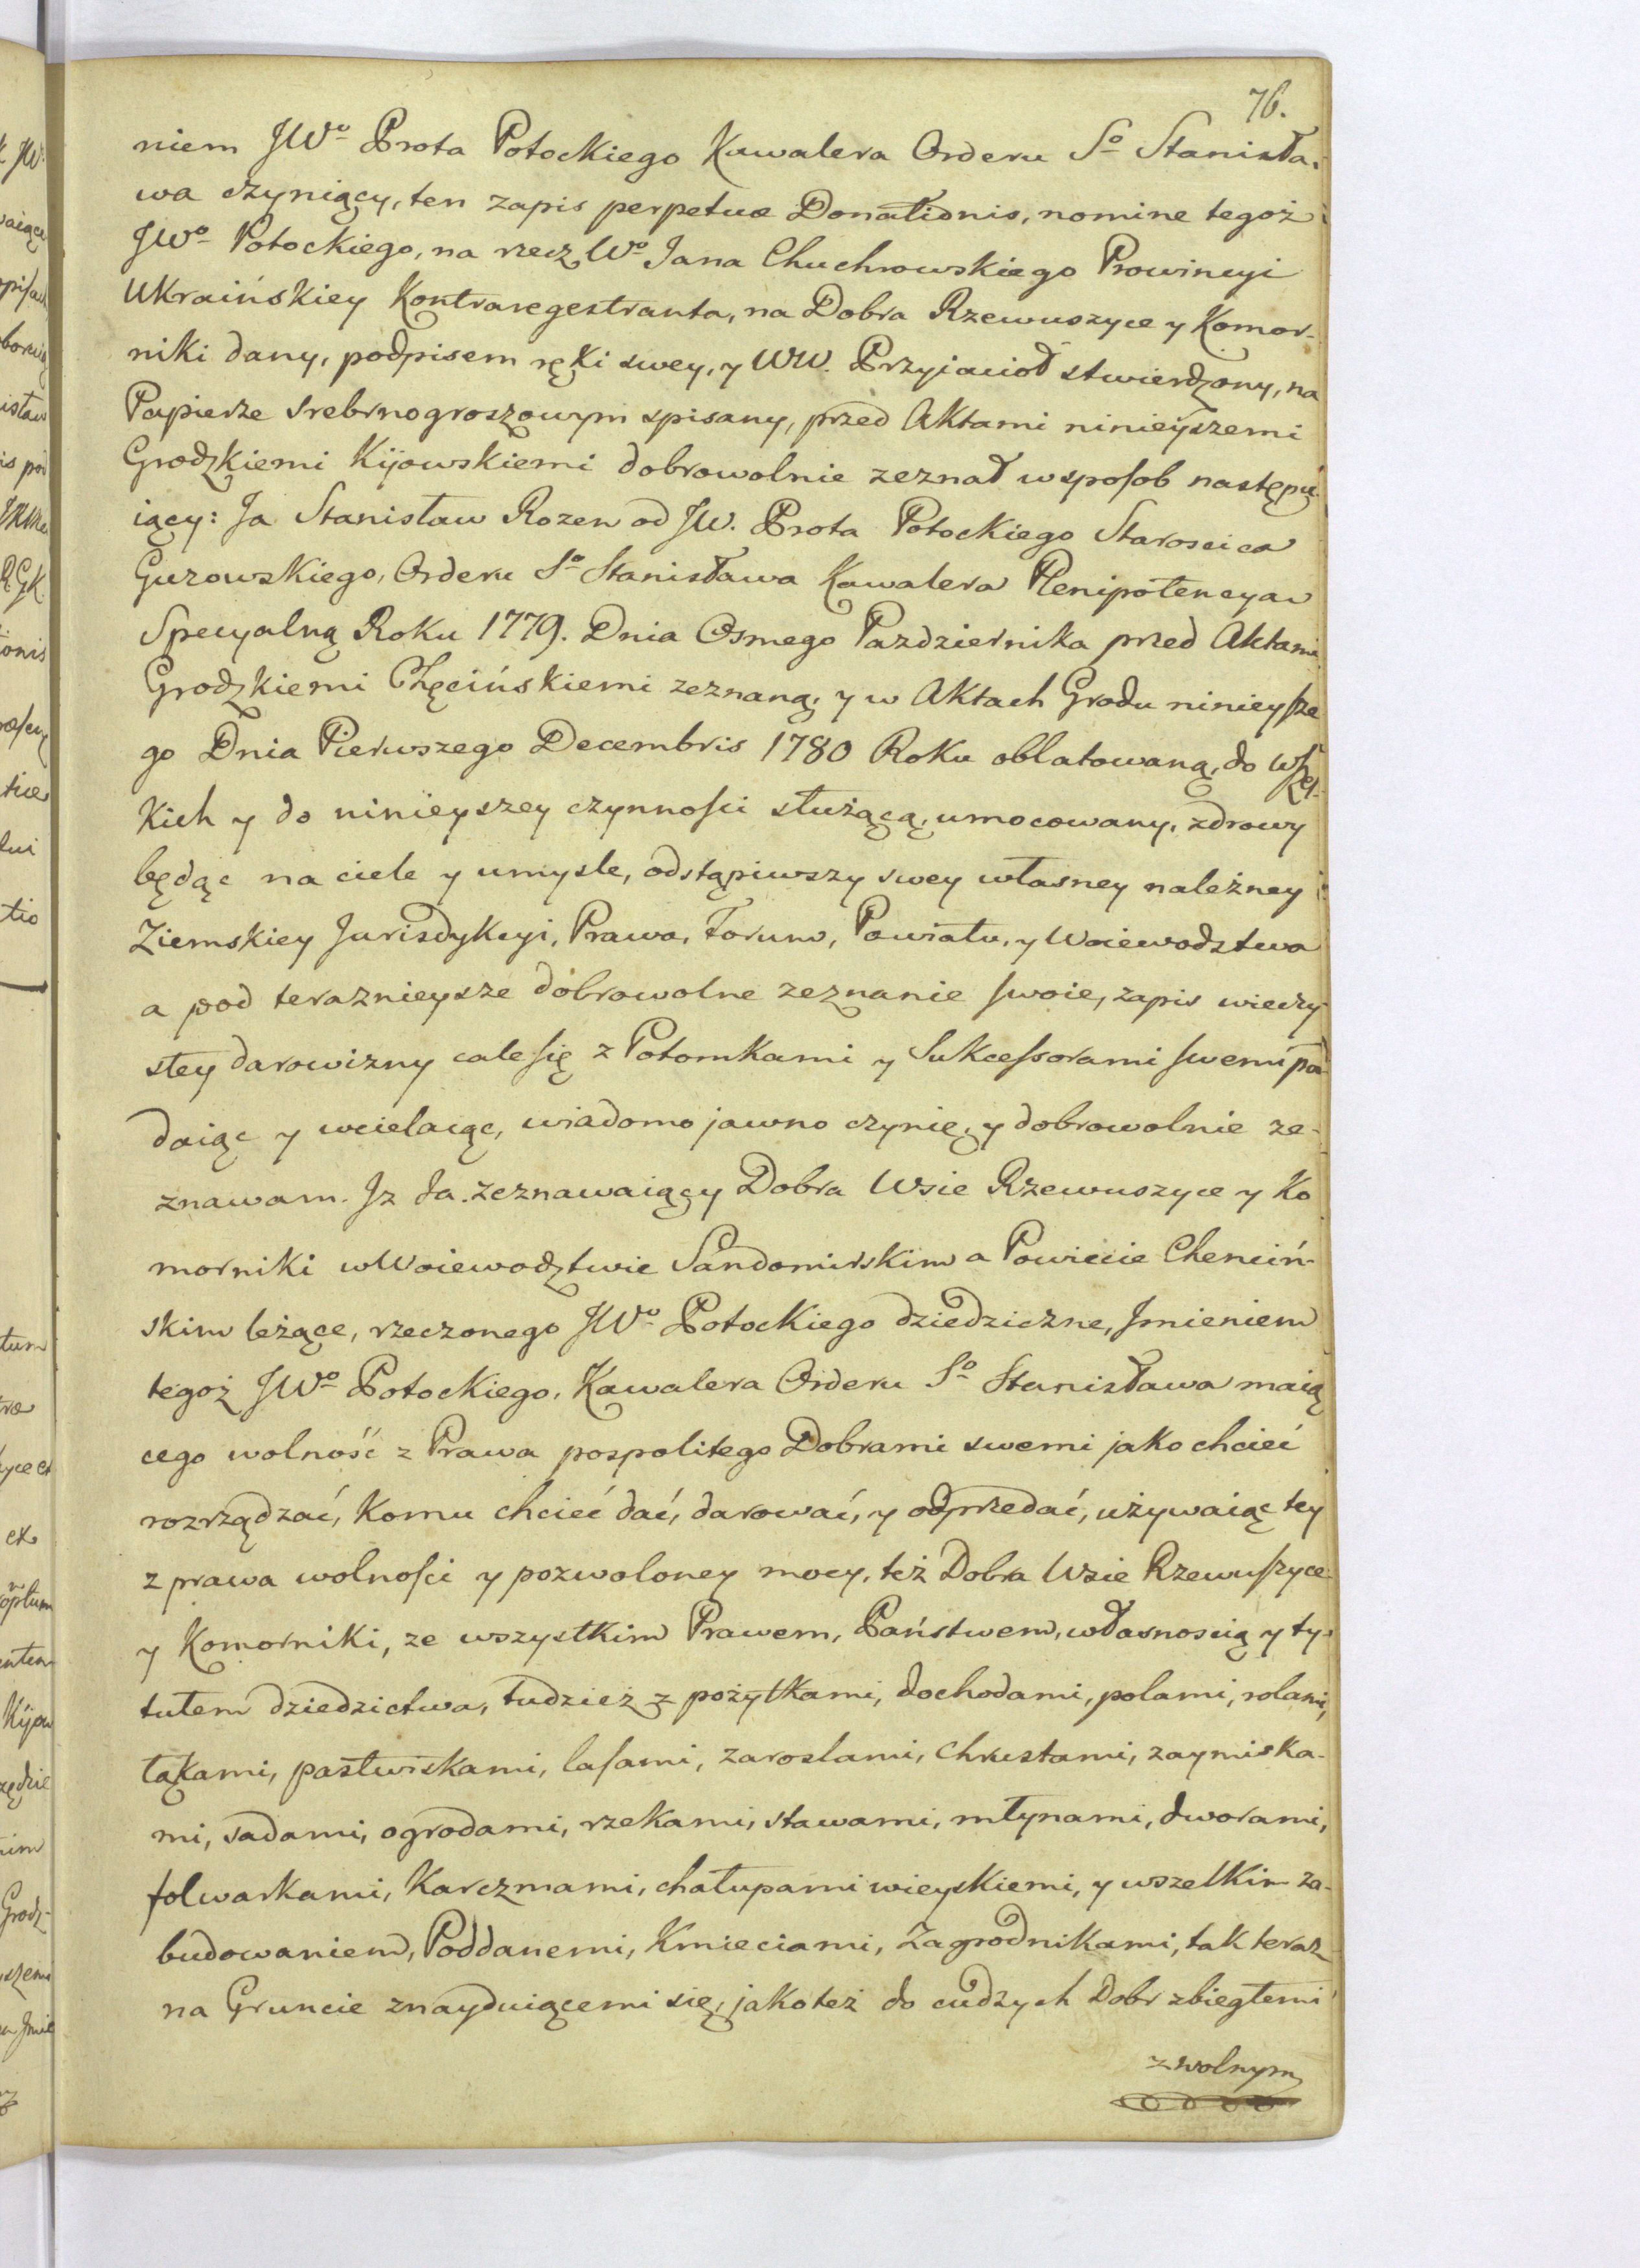 76.
niem JWº Prota Potockiego Kawalera Orderu Sº Stanisła-
wa czyniący, ten zapis perpetuæ Donationis, nomine tegoż
JWº Potockiego, na rzecz Wº Jana Chuchrowskiego Prowincyi
Ukraińskiey Kontraregestranta, na Dobra Rzewuszyce y Komor-
niki dany, podpisem ręki swey, y WW. Przyjacioł stwierdzony, na
Papierze srebrnogroszowym spisany, przed Aktami ninieyszemi
Grodzkiemi Kijowskiemi dobrowolnie zeznał wsposob następu-
iący: Ja Stanisław Rozen od JW. Prota Potockiego Staroscica
Guzowskiego, Orderu Sº Stanisława Kawalera Plenipotencyą
Specyalną Roku 1779. Dnia Osmego Pazdziernika przed Aktami
Grodzkiemi Chęcińskiemi zeznaną, y w Aktach Grodu ninieysze
go Dnia Pierwszego Decembris 1780 Roku oblatowaną, do wszel-
kich y do ninieyszey czynności służącą, umocowany, zdrowy
będąc na ciele y umysle, odstąpiwszy swey własney należney
Ziemskiey Jurisdykcyi, Prawa, Forum, Powiatu, y Woiewodztwa
a pod teraznieysze dobrowolne zeznanie swoie, zapis wieczy-
stey darowizny cale się z Potomkami y Sukcessorami swemi pod
daiąc y wcielaiąc, wiadomo jawno czynię, y dobrowolnie ze-
znawam. Jz Ja zeznawaiący Dobra Wsie Rzewuszyce y Ko
morniki w Woiewodztwie Sandomirskim a Powiecie Chenciń-
skim leżące, rzeczonego JWº Potockiego dziedziczne, Jmieniem
tegoż JWº Potockiego, Kawalera Orderu Sº Stanisława maią
cego wolność z Prawa pospolitego Dobrami swemi jako chcieć
rozrządzać, komu chcieć dać, darować, y odprzedać, używaiąc tey
z prawa wolności y pozwoloney mocy, też Dobra Wsie Rzewuszyce
y Komorniki, ze wszystkim Prawem, Państwem, własnoscią y ty-
tułem dziedzictwa, tudzież z pożytkami, dochodami, polami, rolami,
łąkami, pastwiskami, lasami, zaroslami, chrustami, zaymiska-
mi, sadami, ogrodami, rzekami, stawami, młynami, dworami,
folwarkami, karczmami, chałupami wieyskiemi, y wszelkim za-
budowaniem, Poddanemi, Kmieciami, Zagrodnikami, tak teraz
na Gruncie znayduiącemi się, jako też do cudzych Dobr zbiegłemi
z wolnym